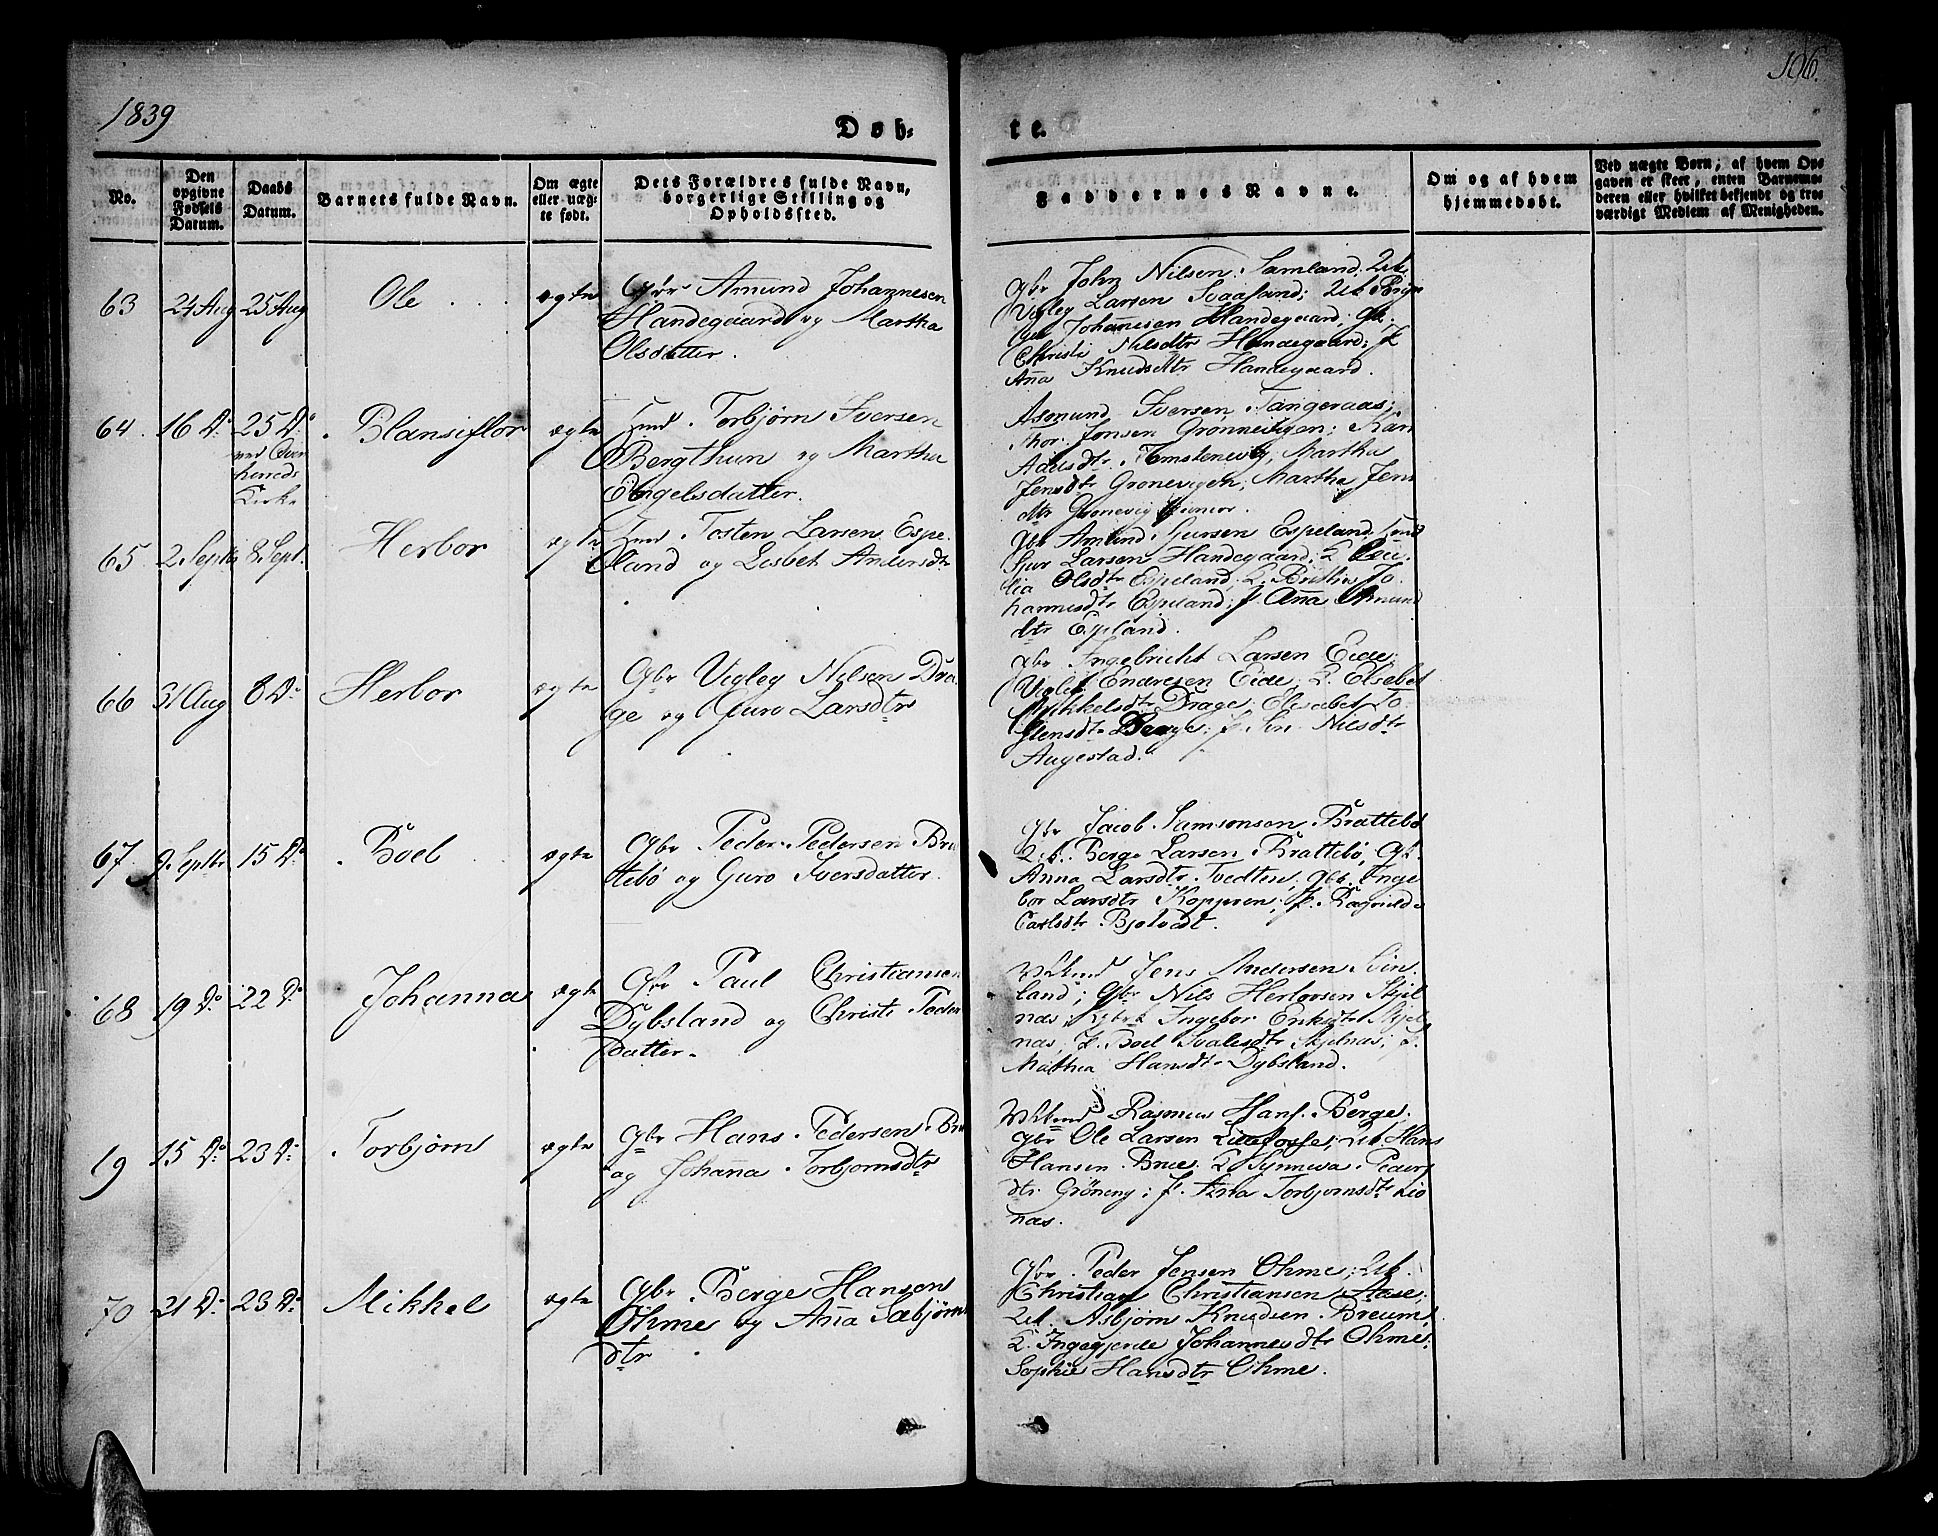 1839
Døb-
te.
196.
No.
Den opgivne Fødsels Datum.
Daabs Datum.
Barnets fulde Navn.
Om ægte eller uægte født.
Dets Forældres fulde Navn, borgerlige Stilling og Opholdssted.
Faddernes Navne.
Om og af hvem hjemmedøbt.
Ved uægte Børn; af hvem Opgaven er skeet, enten Barnemoderen eller hvilket bekjendt og troværdigt Medlem af Menigheden.
63 24 Aug 25 Aug Ole ægte
Gbr Amund Johannesen
Handegaard og Martha
Olsdatter.
Gbr John Nilsen Samland. Uk.
Vigley Larsen Svaasand; Uk
Johannesen Handegaard; Gk.
Christi Nilsdtr Handegaard; J.
Anna Knudsdtr Handegaard.
64. 16 D: 25 D: Blansiflor ægte
Torbjørn Iversen
Bergthun og Martha
Engelsdatter.
Asmund Iversen Tangeraas;
Thor Jonsen Grønnevigen; Kari
Martha
Jensdtr Gronevigen; Martha Jens
dtr Gronevig junior.
65. 2. Septbr 8 Sept. Herbor ægte
Tosten Larsen Espe-
land og Lisbet Andersdtr
Gbr Amund Gursen Espeland,
Sjur Larsen Handegaard; K. Ceci-
lia Olsdtr Espeland; K. Jo-
hannesdtr Espeland; J. Anna Amund
dtr Espland.
66 31 Aug 8 D: Herbor ægte
Gbr Vigley Nilsen Dra-
ge og Guro Larsdtr
Gbr Ingebricht Larsen Eide;
Endresen Eide; K. Elsebet
Mikkelsdtr Drage; Elisabet To-
stensdtr Berge; J. Siri Nilsdtr
Augestad.
67. 9. Septbr 15 D: Boel ægte
Gbr Peder Pedersen Bra-
tebø og Guro Iversdatter.
Gbr Jacob Samsonsen Brattebø
Uk. Berge Larsen Brattebø, Gk.
Anna Larsdtr Tvedten; Gbk Inge-
bor Larsdtr Koppren; J.
Carlsdtr
68 19 D: 22 D: Johanna ægte
Gbr Paul Christiansen
Dybsland og Christi Peder
datter.
Jens Andersen
land; Gbr Nils Herlovsen Skjel-
næs; Gbrk Ingebor Eriksdtr Skjel-
næs; J. Boel Svalesdtr Skjelnæs; J.
Mathea Hansdtr Dybsland.
69 15 D: 23 D: Torbjørn ægte
Gbr Hans Pedersen
og Johanna Torbjornsdtr
Rasmus Hans. Berge;
Gbr Ole Larsen Uk. Hans
Hansen K. Synneva Peders
dtr Anna Torbjornsdtr
næs.
70 21 D: 23 D: Mikkel ægte
Gbr Berge Hansen
Ohme og Anna Sæbjørns
dtr
Gbr Peder Jensen Ohme; Uk.
Christian Christiansen Aase;
Uk. Asbjørn Knudsen
K. Ingegjerde Johannesdtr Ohme;
Sophie Hansdtr Ohme.